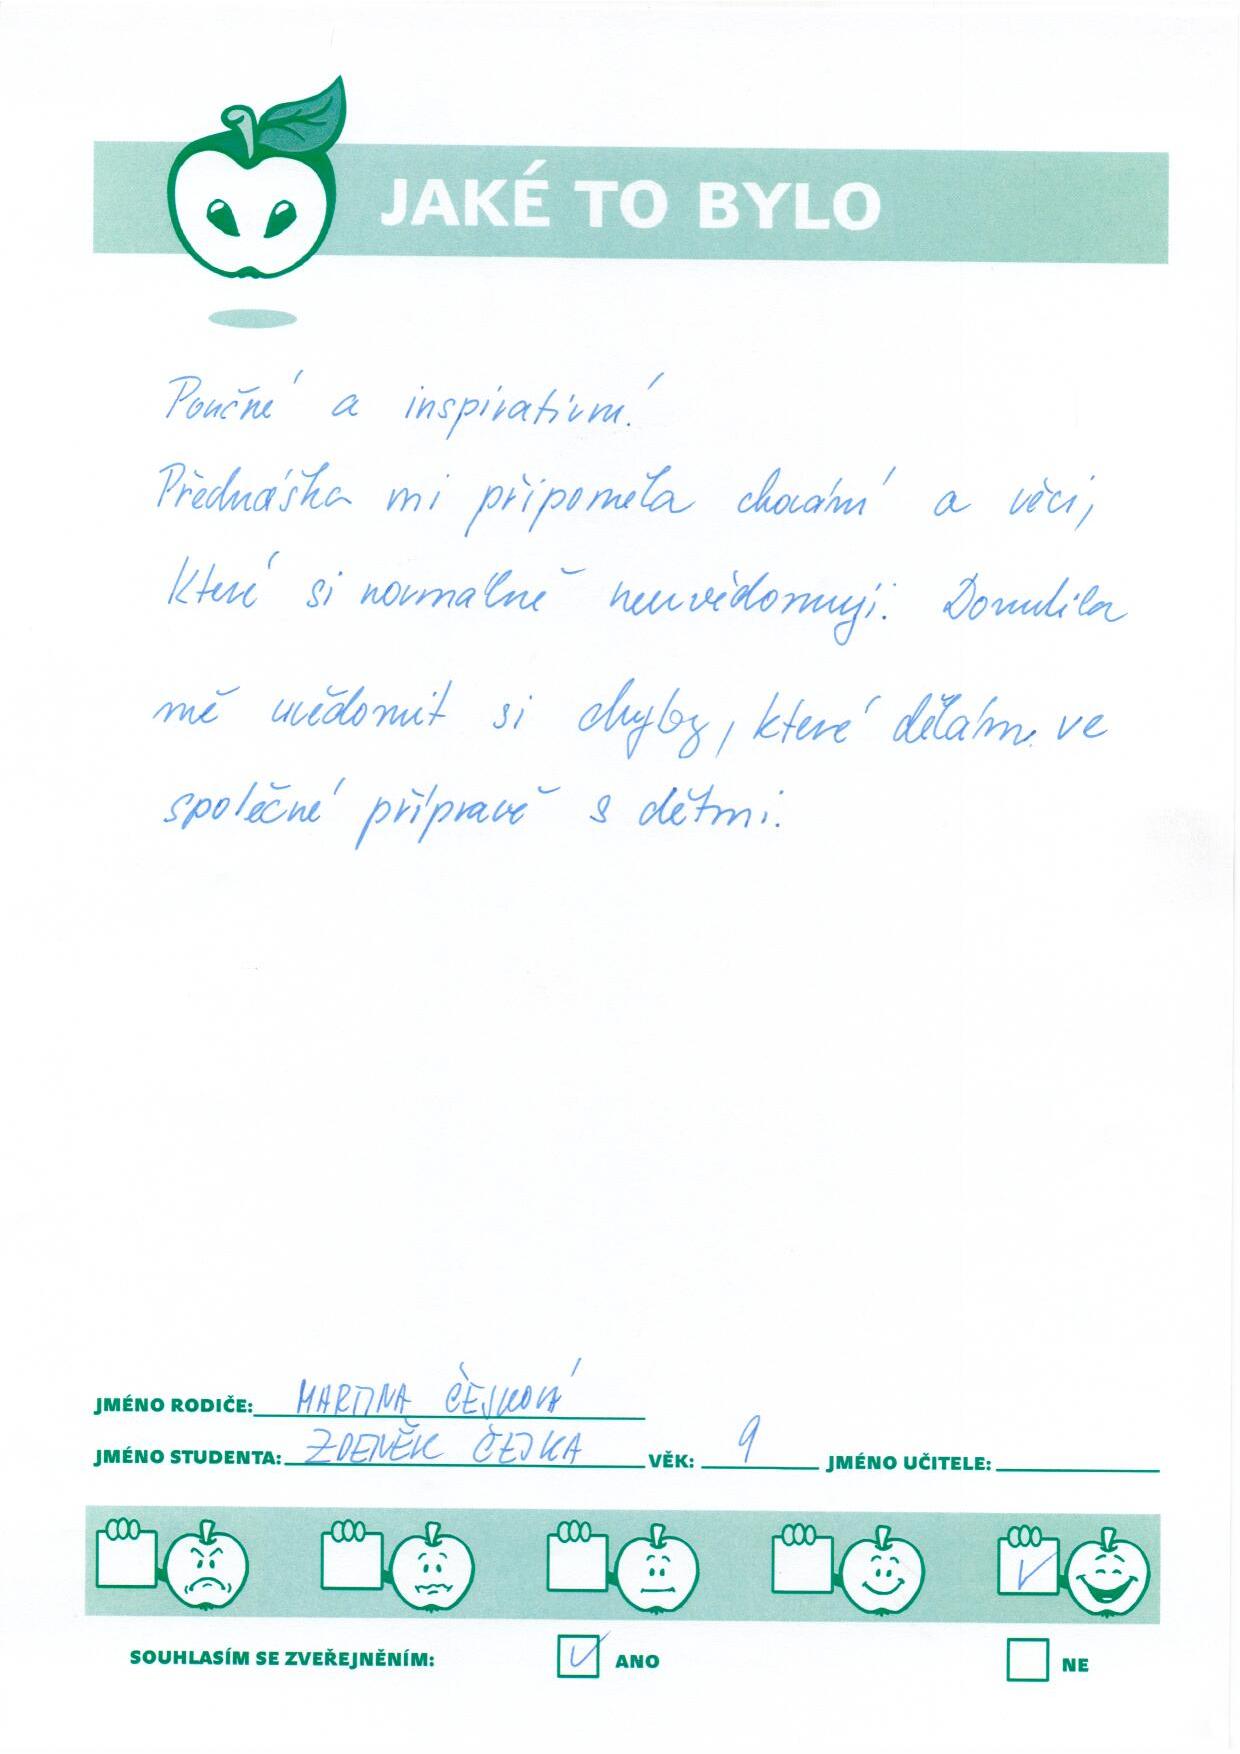 JAKÉ TO BYLO
Poučné a inspirativní.
Přednáška mi připoměla chování a věci,
které si normálně neuvědomuji. Donutila
mě uvědomit si chyby, které dělám ve
společné přípravě s dětmi.
JMÉNO RODIČE: MARTINA ČEJKOVÁ
JMÉNO STUDENTA: ZDENĚK ČEJKA VĚK: 9 JMÉNO UČITELE:
SOUHLASÍM SE ZVEŘEJNĚNÍM: ANO NE